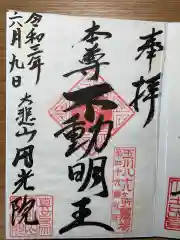 奉拝
本尊不動明王
令和三年
六月九日
大悲山円光院